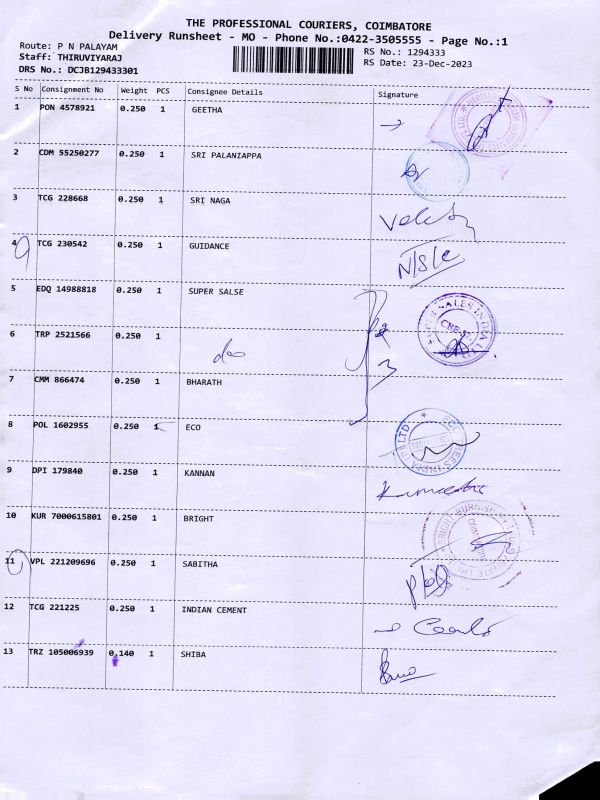 THE PROFESSIONAL COURIERS, COIMBATORE
Delivery Runsheet - MO - Phone No.:0422-3505555 - Page No.:1
Route: P N PALAYAM
Staff: THIRUVIYARAJ
DRS No.: DCJB129433301
RS No.: 1294333
RS Date: 23-Dec-2023
S No Consignment No Weight PCS Consignee Details Signature
1 PON 4578921 0.250 1 GEETHA
2 CDM 55250277 0.250 1 SRI PALANIAPPA
3 TCG 228668 0.250 1 SRI NAGA
4 TCG 230542 0.250 1 GUIDANCE N/S/C
5 EDQ 14988818 0.250 1 SUPER SALSE
6 TRP 2521566 0.250 1 do
7 CMM 866474 0.250 1 BHARATH
8 POL 1602955 0.250 1 ECO
9 DPI 179840 0.250 1 KANNAN
10 KUR 7000615801 0.250 1 BRIGHT
11 VPL 221209696 0.250 1 SABITHA
12 TCG 221225 0.250 1 INDIAN CEMENT
13 TRZ 105006939 0.140 1 SHIBA